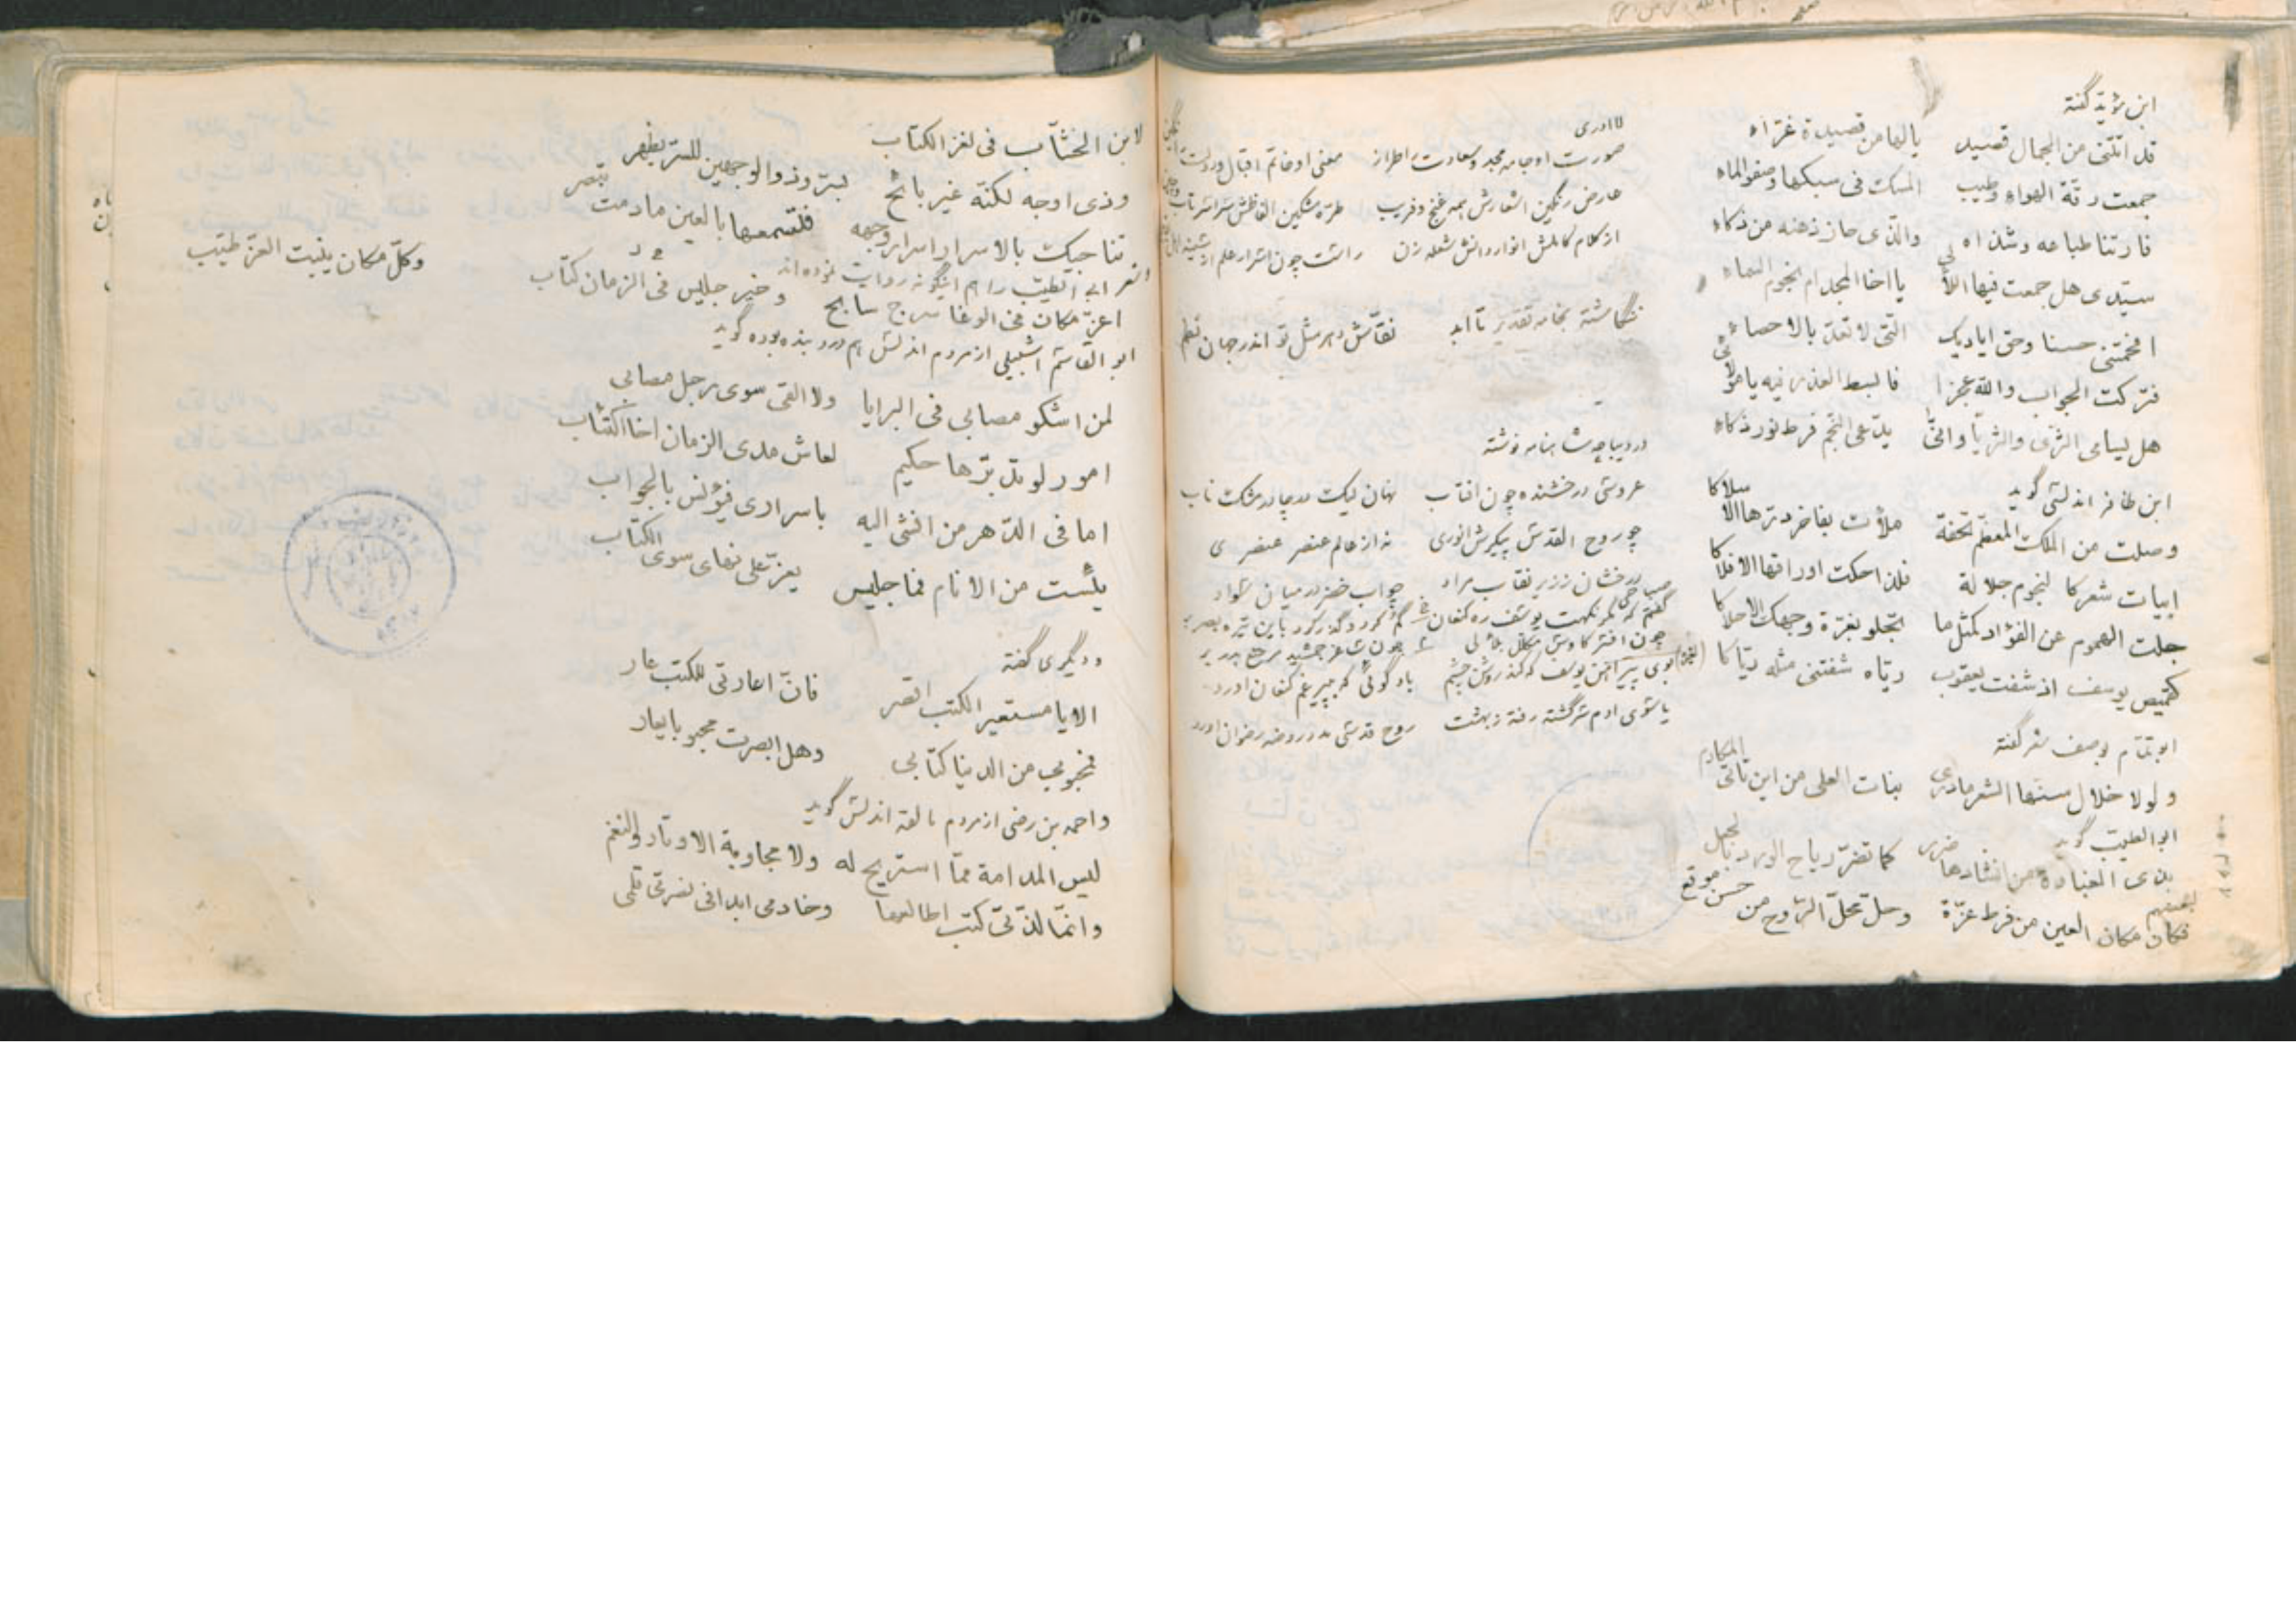 ابن مؤید گفته
قد اتتنی من الجمال قصید یالها من قصیدة غرّاء
جمعت رقة الهواء وطیب المسک فی سبکها وصفو الماء
فارتنا طباعه وشذاه والذی حاز ذهنه من ذکاء
سیّدی هل جمعت فیها اللآلی یا اخا المجد ام نجوم السماء
افحمتنی حسنا وحق ایادیک التی لا تعدّ بالاحصاء
فترکت الجواب والله عجزا فابسط العذر فیه یا مولائی
هل یسامی الثری والثریا وانّی یدّعی النجم فرط نور ذکاء
ابن ظافر اندلسی گوید
وصلت من الملک المعظم تحفة ملأت بفاخر درّها الاسلاکا
ابیات شعر کالنجوم جلالة فلذا حکت اوراقها الافلاکا
جلت الهموم عن الفؤاد کمثل ما تجلو بغرّة وجهک الاحلاکا
کقمیص یوسف اذ شفت یعقوب ریّاه شفتنی مثله ریّاکا
ابو تمّام بوصف شعر گفته
ولولا خلال سنّها الشعر مادری بناة العلی من این تاتی المکارم
ابو الطیب گوید
بذی الغباوة من انشادها ضرر کما تضرّ ریاح الورد بالجعل
لبعضهم
فکان مکان العین من فرط عزّة وحلّ محلّ الروح من حسن موقع
لا ادری
صورت او جامه مجد و سعادت را طراز معنی او خاتم اقبال و دولت را نگین
عارض رنگین اشعارش همه غنج و فریب طرّه مشکین الفاظش سراسر تاب و چین
از کلام کاملش انوار دانش شعله زن راست چون اسرار علم از
ننگاشته بخامه تقدیر تا ابد نقّاش دهر مثل تو اندر جهان نظم
در دیباچه شاهنامه نوشته
عروسی درخشنده چون افتاب نهان لیک در چادر مشک ناب
چو روح القدس پیکرش انوری نه از عالم عنصر عنصری
درخشان ز زیر نقاب مداد چو آب خضر در میان سواد
گفتم که مگر نکهت یوسف ره کنعان گم کرد و گذر کرد باین تیره بصر بر
بوی پیراهن یوسف که کند روشن چشم باد گوئی که بپیر غم کنعان اورد
یا سوی ادم سرگشته رفته ز بهشت روح قدسی مدد روضه رضوان اورد
لابن الخشّاب فی لغز الکتاب
وذی اوجه لکنّه غیر بائح بسرّ وذو الوجهین للسرّ یظهر
تناجیک بالاسرار اسرار وجهه فلتسمعها بالعین مادمت تبصر
شعر ابی الطیب را هم اینگونه روایت نموده اند
اعزّ مکان فی الوغا سرج سابح وخیر جلیس فی الزمان کتاب وکلّ مکان ینبت العزّ طیّب
ابو القاسم اشبیلی از مردم اندلس هم درد بنده بوده گوید
لمن اشکو مصابی فی البرایا ولا القی سوی رجل مصاب
امور لو تدبّرها حکیم لعاش مدی الزمان اخا اکتئاب
اما فی الدّهر من افشی الیه باسراری فیؤنس بالجواب
یئست من الانام فما جلیس یعزّ علی نهای سوی الکتاب
و دیگری گفته
الا یا مستعیر الکتب اقصر فانّ اعارتی للکتب عار
فمحبوبی من الدنیا کتابی وهل ابصرت محبوبا یعار
واحمد بن رضی از مردم مالقه اندلس گوید
لیس المدامة ممّا استریح له ولا مجاوبة الاوتار والنغم
وانّما لذّتی کتب اطالعها وخادمی ابدا فی نصرتی قلمی